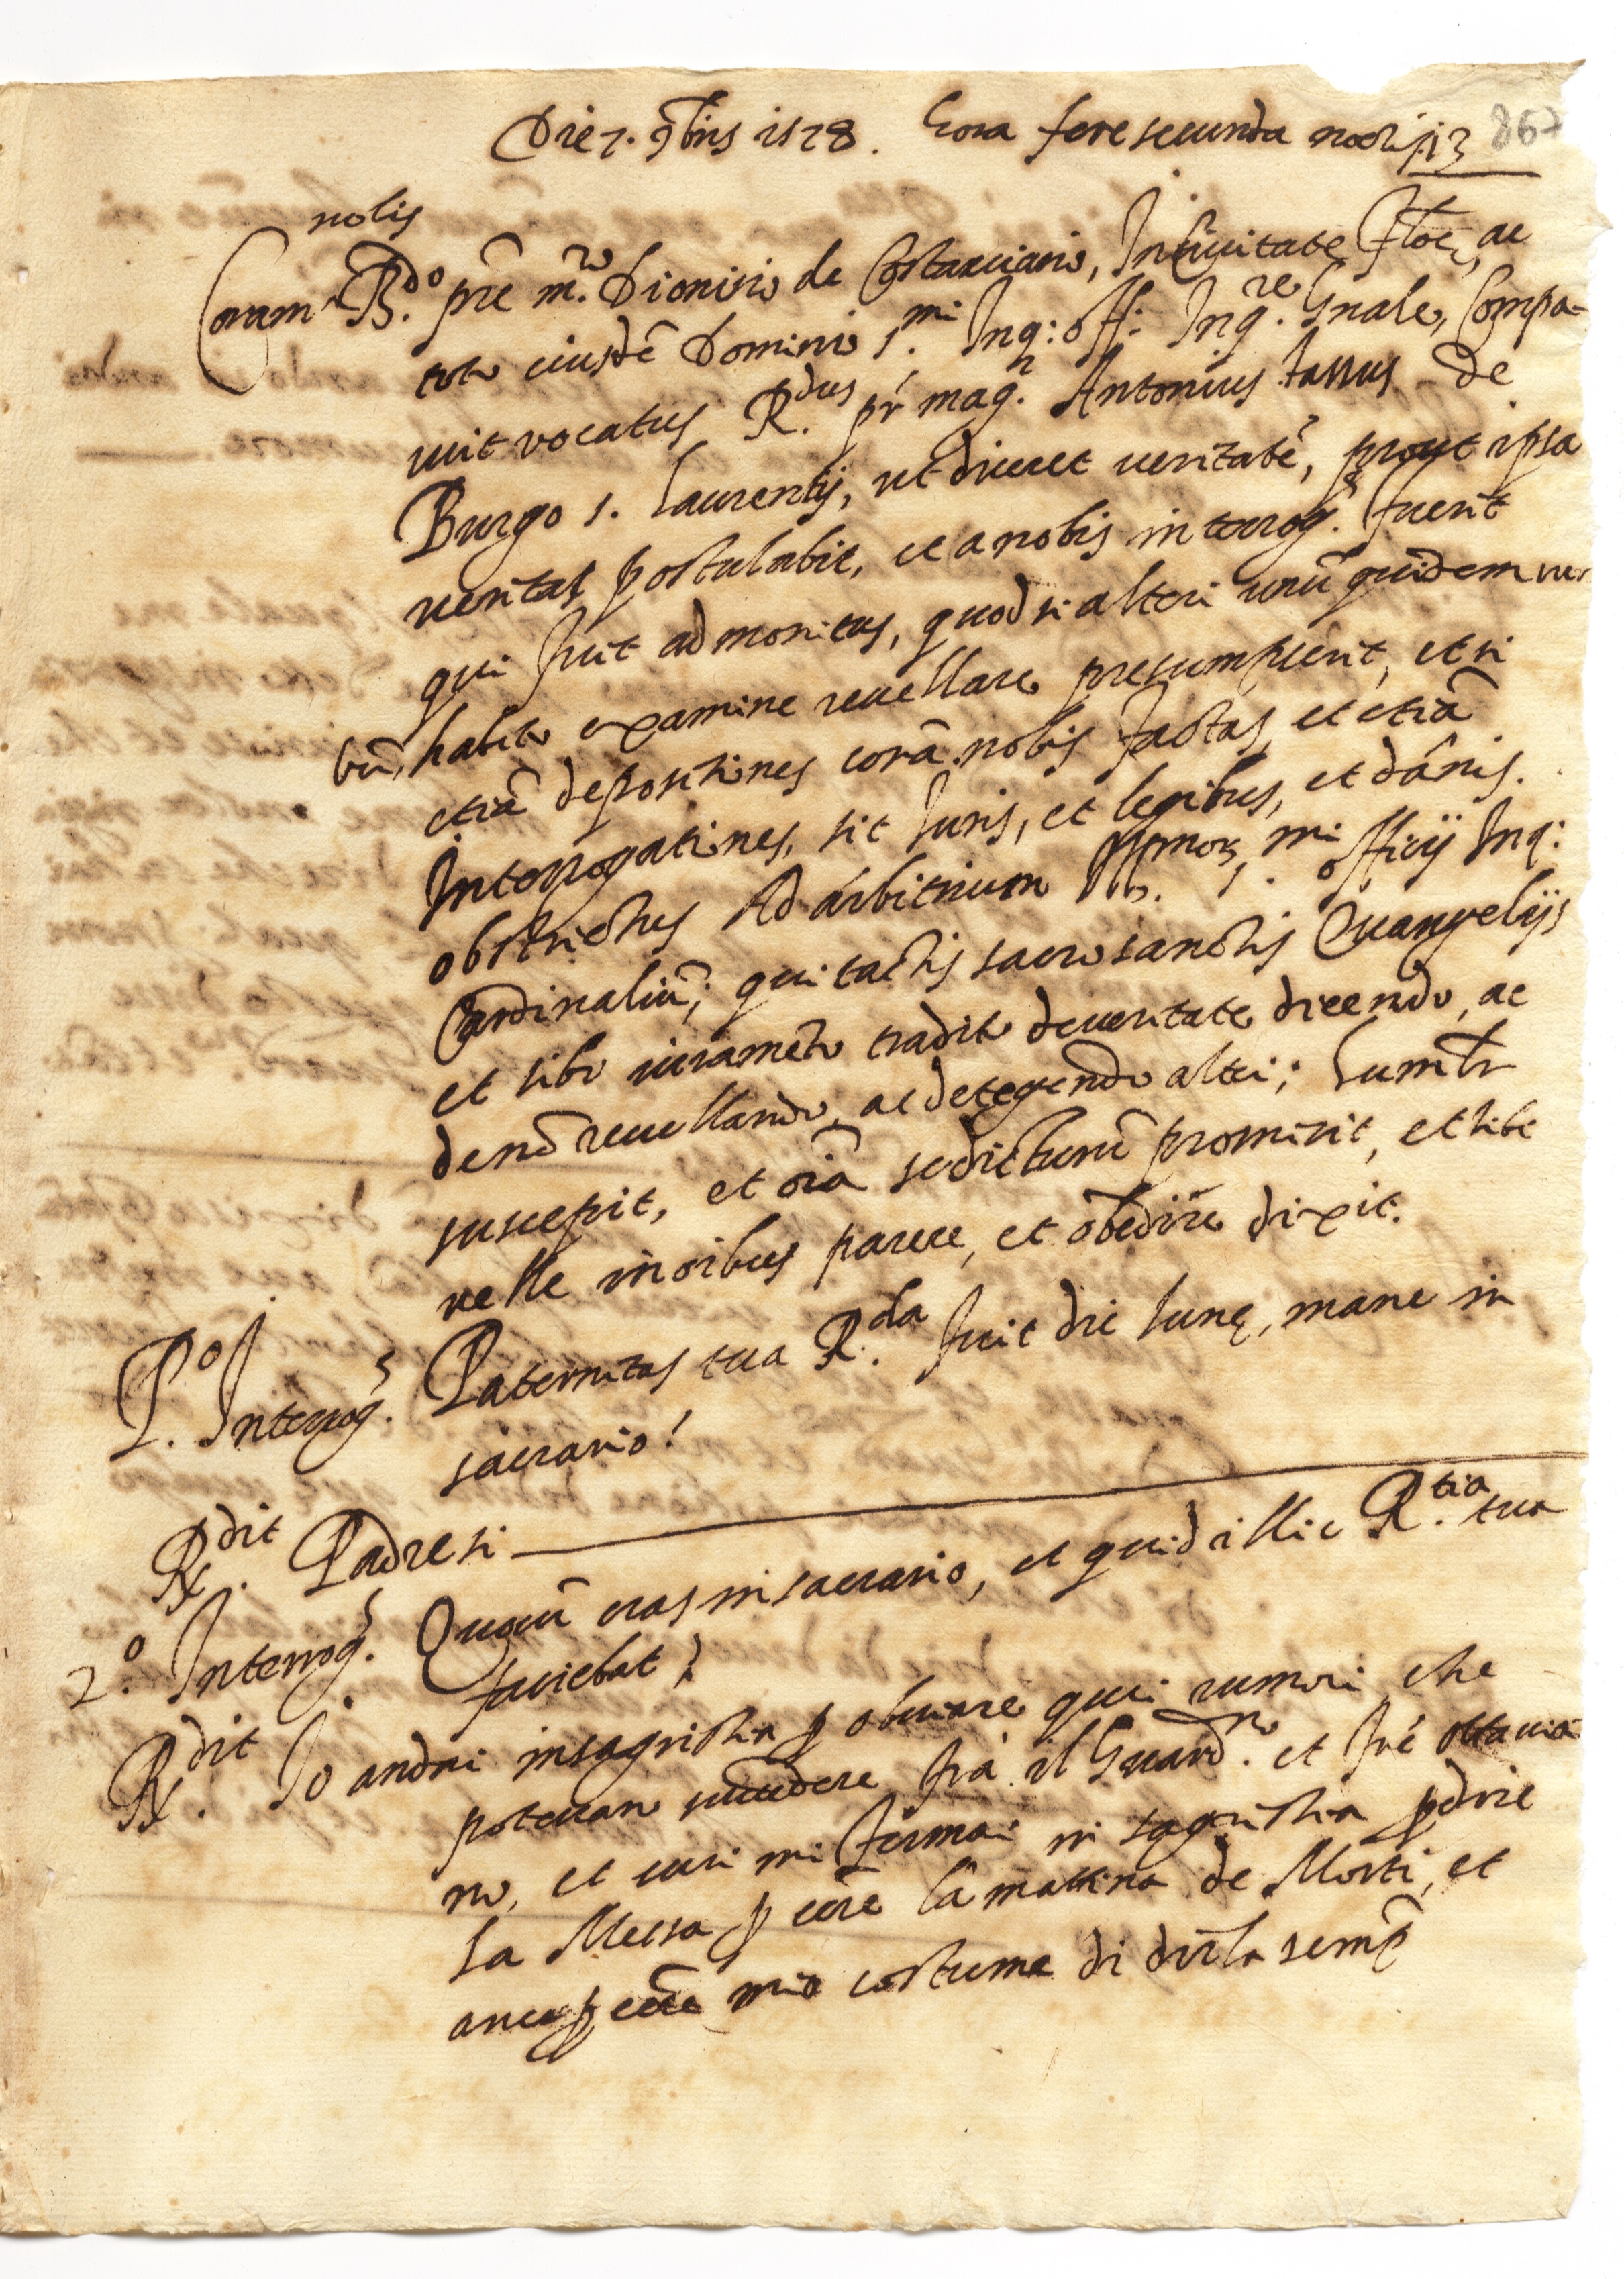 Die 7. 9bris 1578. hora fere secunda noctis 13 867
nobis
Coram R.do prē m.ro Dionisio de Costacciario, In Civitate Flor., ac
toto eiusdē Dominio s.mi Inq: off: Inq.re Gnale, Compa-
ruit vocatus R.dus pr mag.r Antonius Tassus de
Burgo s. Laurentij, ut diceret veritatē, prout ipsa
veritas postulabit, et a nobis interrog.s fuerit
qui fuit admonitus, quod si alteri unū quidem ver
bū, habito examine revellare presumpserit, et si
etiā depositiones corā nobis factas, et etiā
Interrogationes, sit Iuris, et legibus, et dānis.
obstrictus Ad arbitrium s.mi officij Inq:
Cardinaliū; qui tactis sacrosanctis Evangelijs
et sibi iuramēto tradito de veritate dicendo, ac
de nō revellando, ac detegendo alteri;
suscepit, et oīa se dicturū promisit, et sibi
velle in oībus parere, et obedire dixit.
P.o Interrog.s Paternitas tua R.da fuit die lunę, mane in
sacrario?
R.dit Padre si
2.o Interrog.s Quoniā eras in sacrario, et quid illic R.tia tua
faciebat?
R.dit Io andai in sagristia p obviare qui rumori che
potevano succedere frà il Guard.no et frè ottavia
no, et cosi mi fermai in sagristia p dire
la Messa p eēre la mattina de Morti, et
anco p eēre mio costume di dirla semp